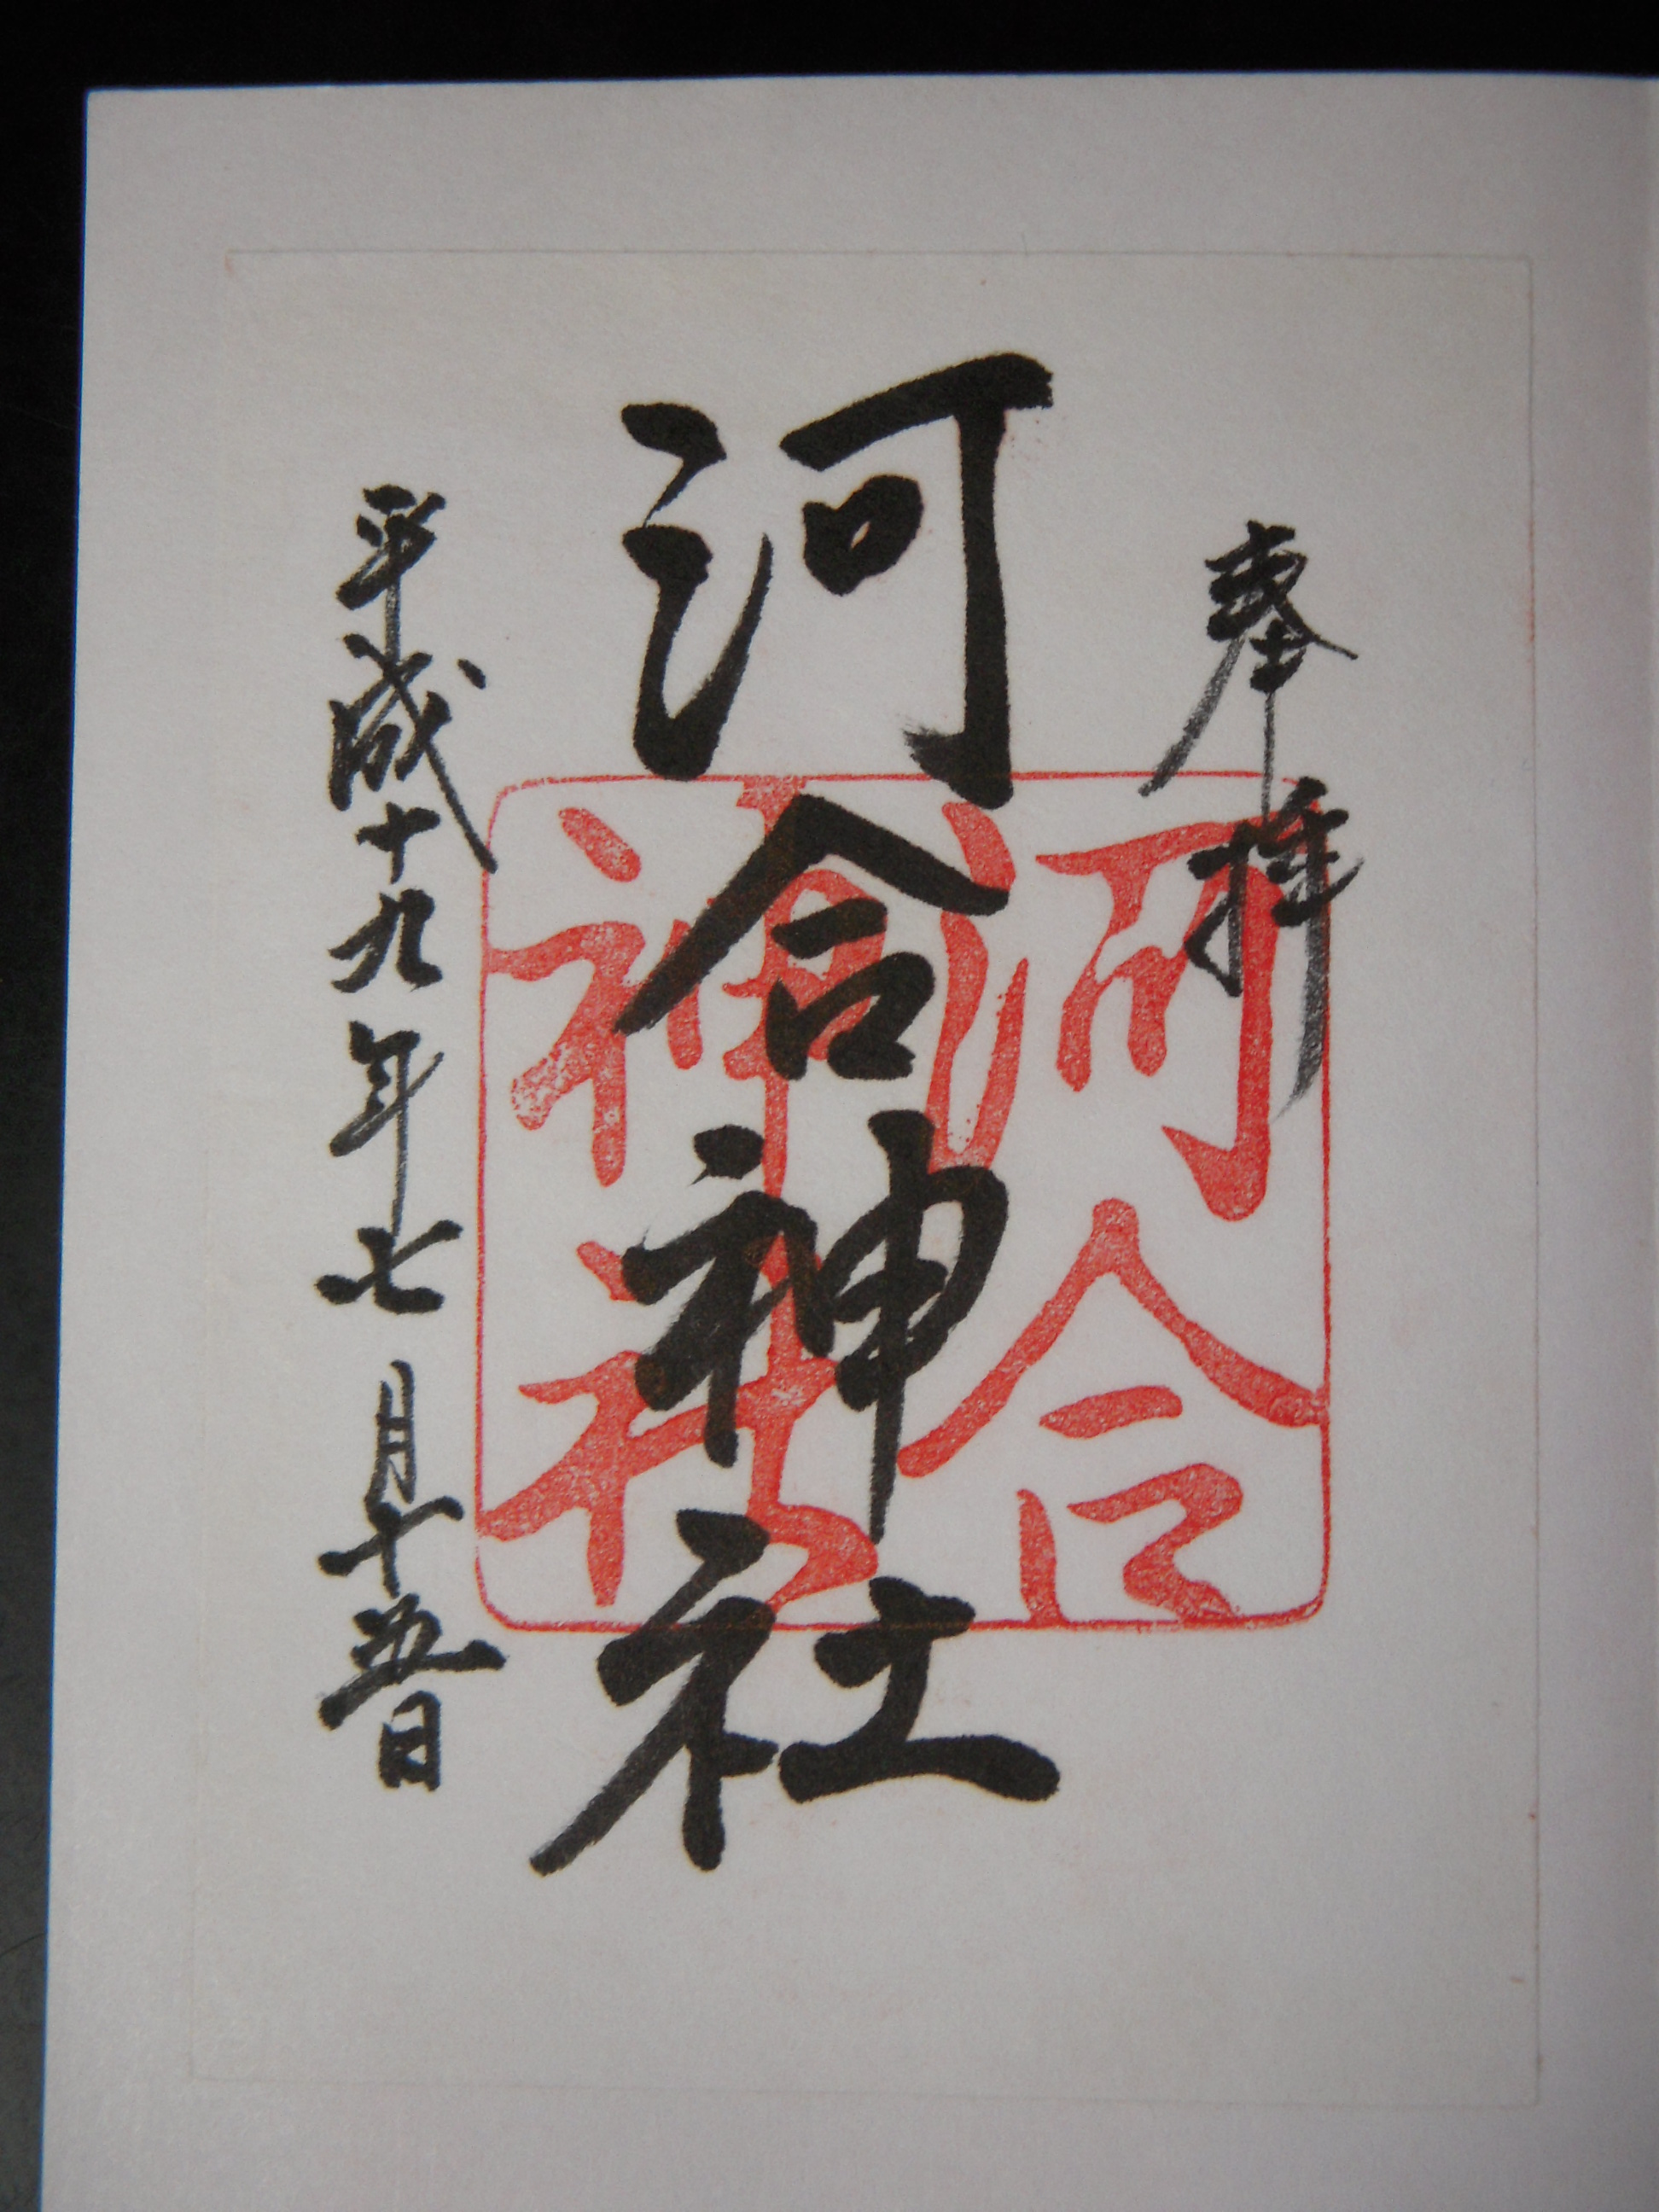 奉拝
河合神社
河合
神社
平成十九年七月十五日